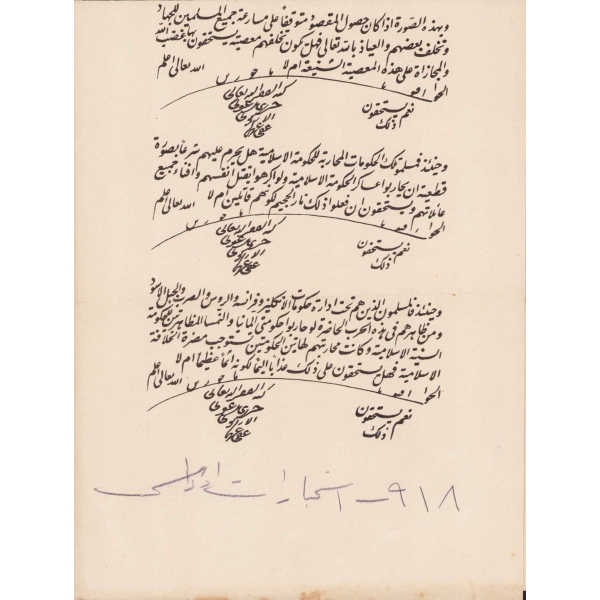 وبهذه الصورة اذا كان حصول المقصود متوقفا على مسارعة جميع المسلمين للجهاد
وتخلف بعضهم والعياذ بالله تعالى فهل تكون تخلفهم معصية يستحقون بها غضب الله
والمجازاة على هذه المعصية الشنيعة ام لا
الله تعالى اعلم
الجواب
نعم يستحقون
ذلك
كتبه الفقير اليه تعالى
خيرى بن عونى
الاركوبى
عفى عنهما
وحينئذ فمسلموا تلك الحكومات المحاربة للحكومة الاسلامية هل يحرم عليهم شرعا بصورة
قطعية ان يحاربوا عساكر الحكومة الاسلامية ولو اكرهوا بقتل انفسهم وافناء جميع
عائلاتهم ويستحقون ان فعلوا ذلك نار الجحيم لكونهم قاتلين ام لا
الله تعالى اعلم
الجواب
نعم يستحقون
ذلك
كتبه الفقير اليه تعالى
خيرى بن عونى
الاركوبى
عفى عنهما
وحينئذ فالمسلمون الذين هم تحت ادارة حكومات الانكليز وفرانسه والروس والصرب والجبل الاسود
ومن ظاهرهم فى هذه الحرب الحاضرة لو حاربوا حكومتى المانيا والنمسا المظاهرتين للحكومة
السنية الاسلامية وكانت محاربتهم لهاتين الحكومتين تستوجب مضرة الخلافة
الاسلامية فهل يستحقون على ذلك عذابا اليما لكونه اثما عظيما ام لا
الله تعالى اعلم
الجواب
نعم يستحقون
ذلك
كتبه الفقير اليه تعالى
خيرى بن عونى
الاركوبى
عفى عنهما
٩١٨ - استخبارات